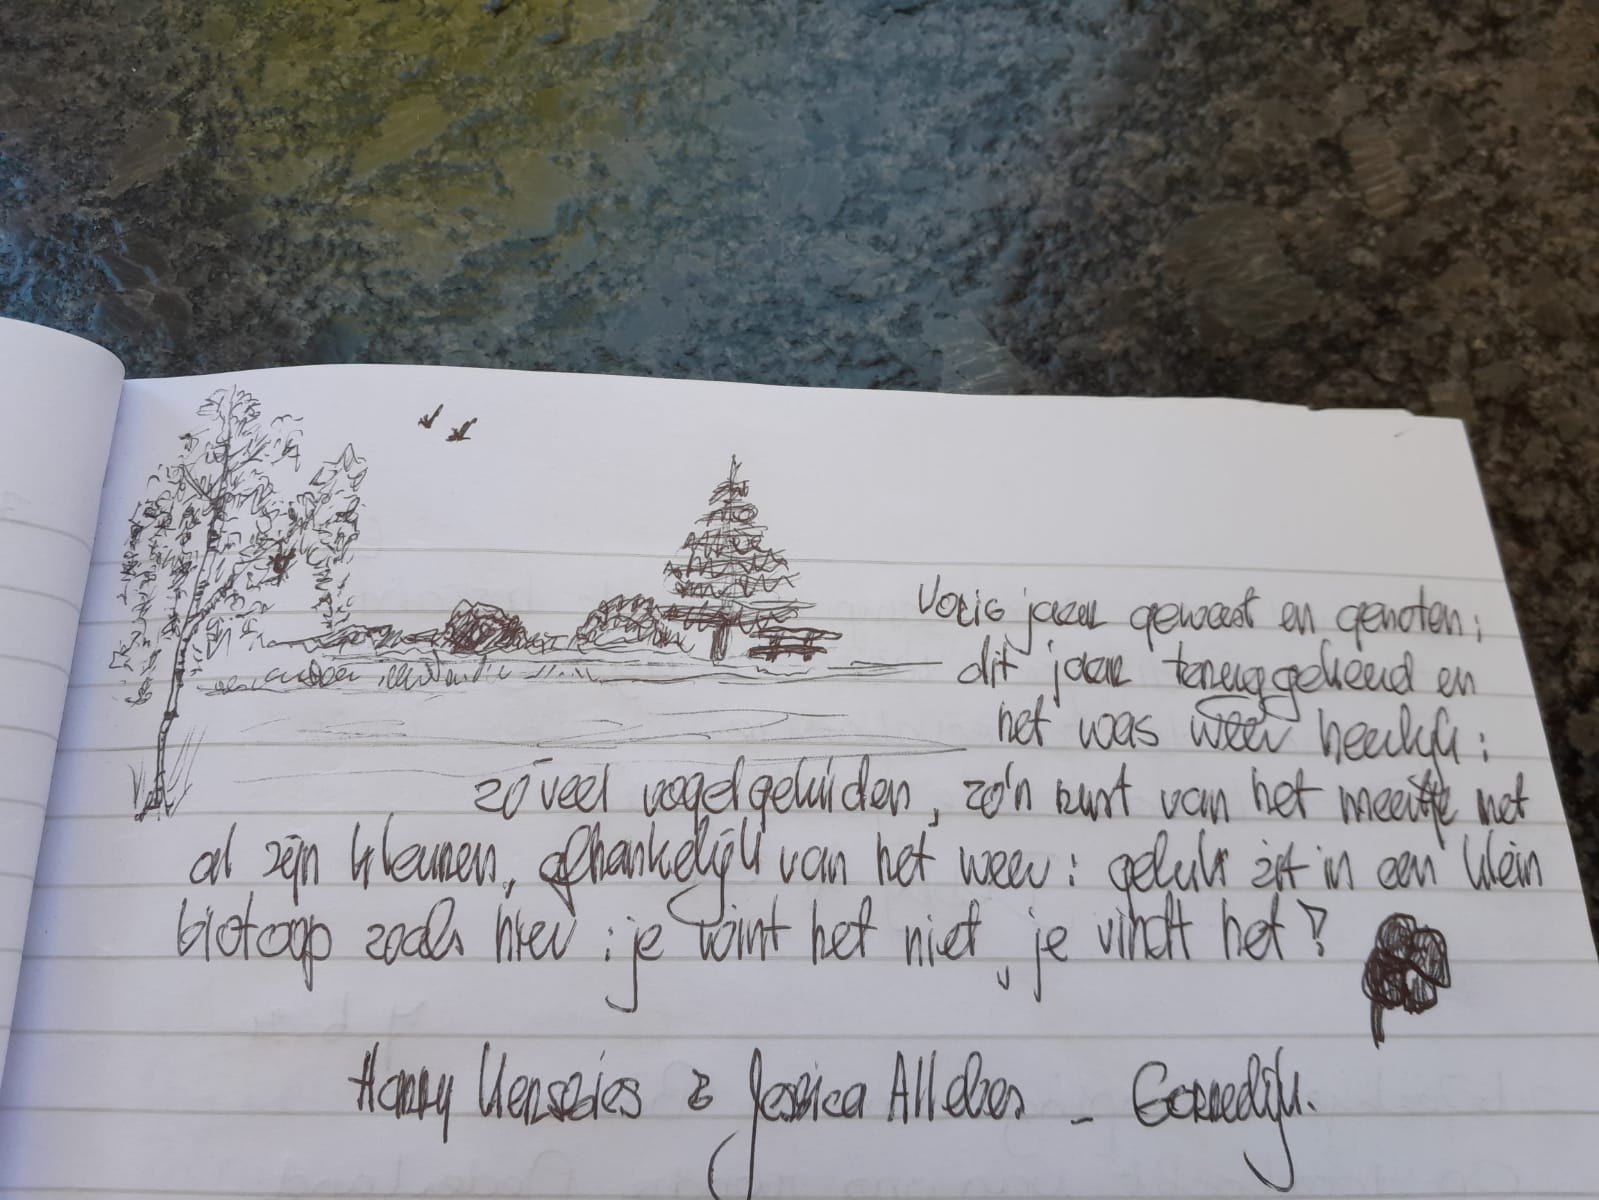 Vorig jaar geweest en genoten;
dit jaar teruggekeerd en
het was weer heerlijk:
zóveel vogelgeluiden, zo'n rust van het meertje met
al zijn kleuren, afhankelijk van het weer: geluk zit in een klein
biotoop zoals hier: je wint het niet, je vindt het!
Harry & Jessica - Gorredijk.